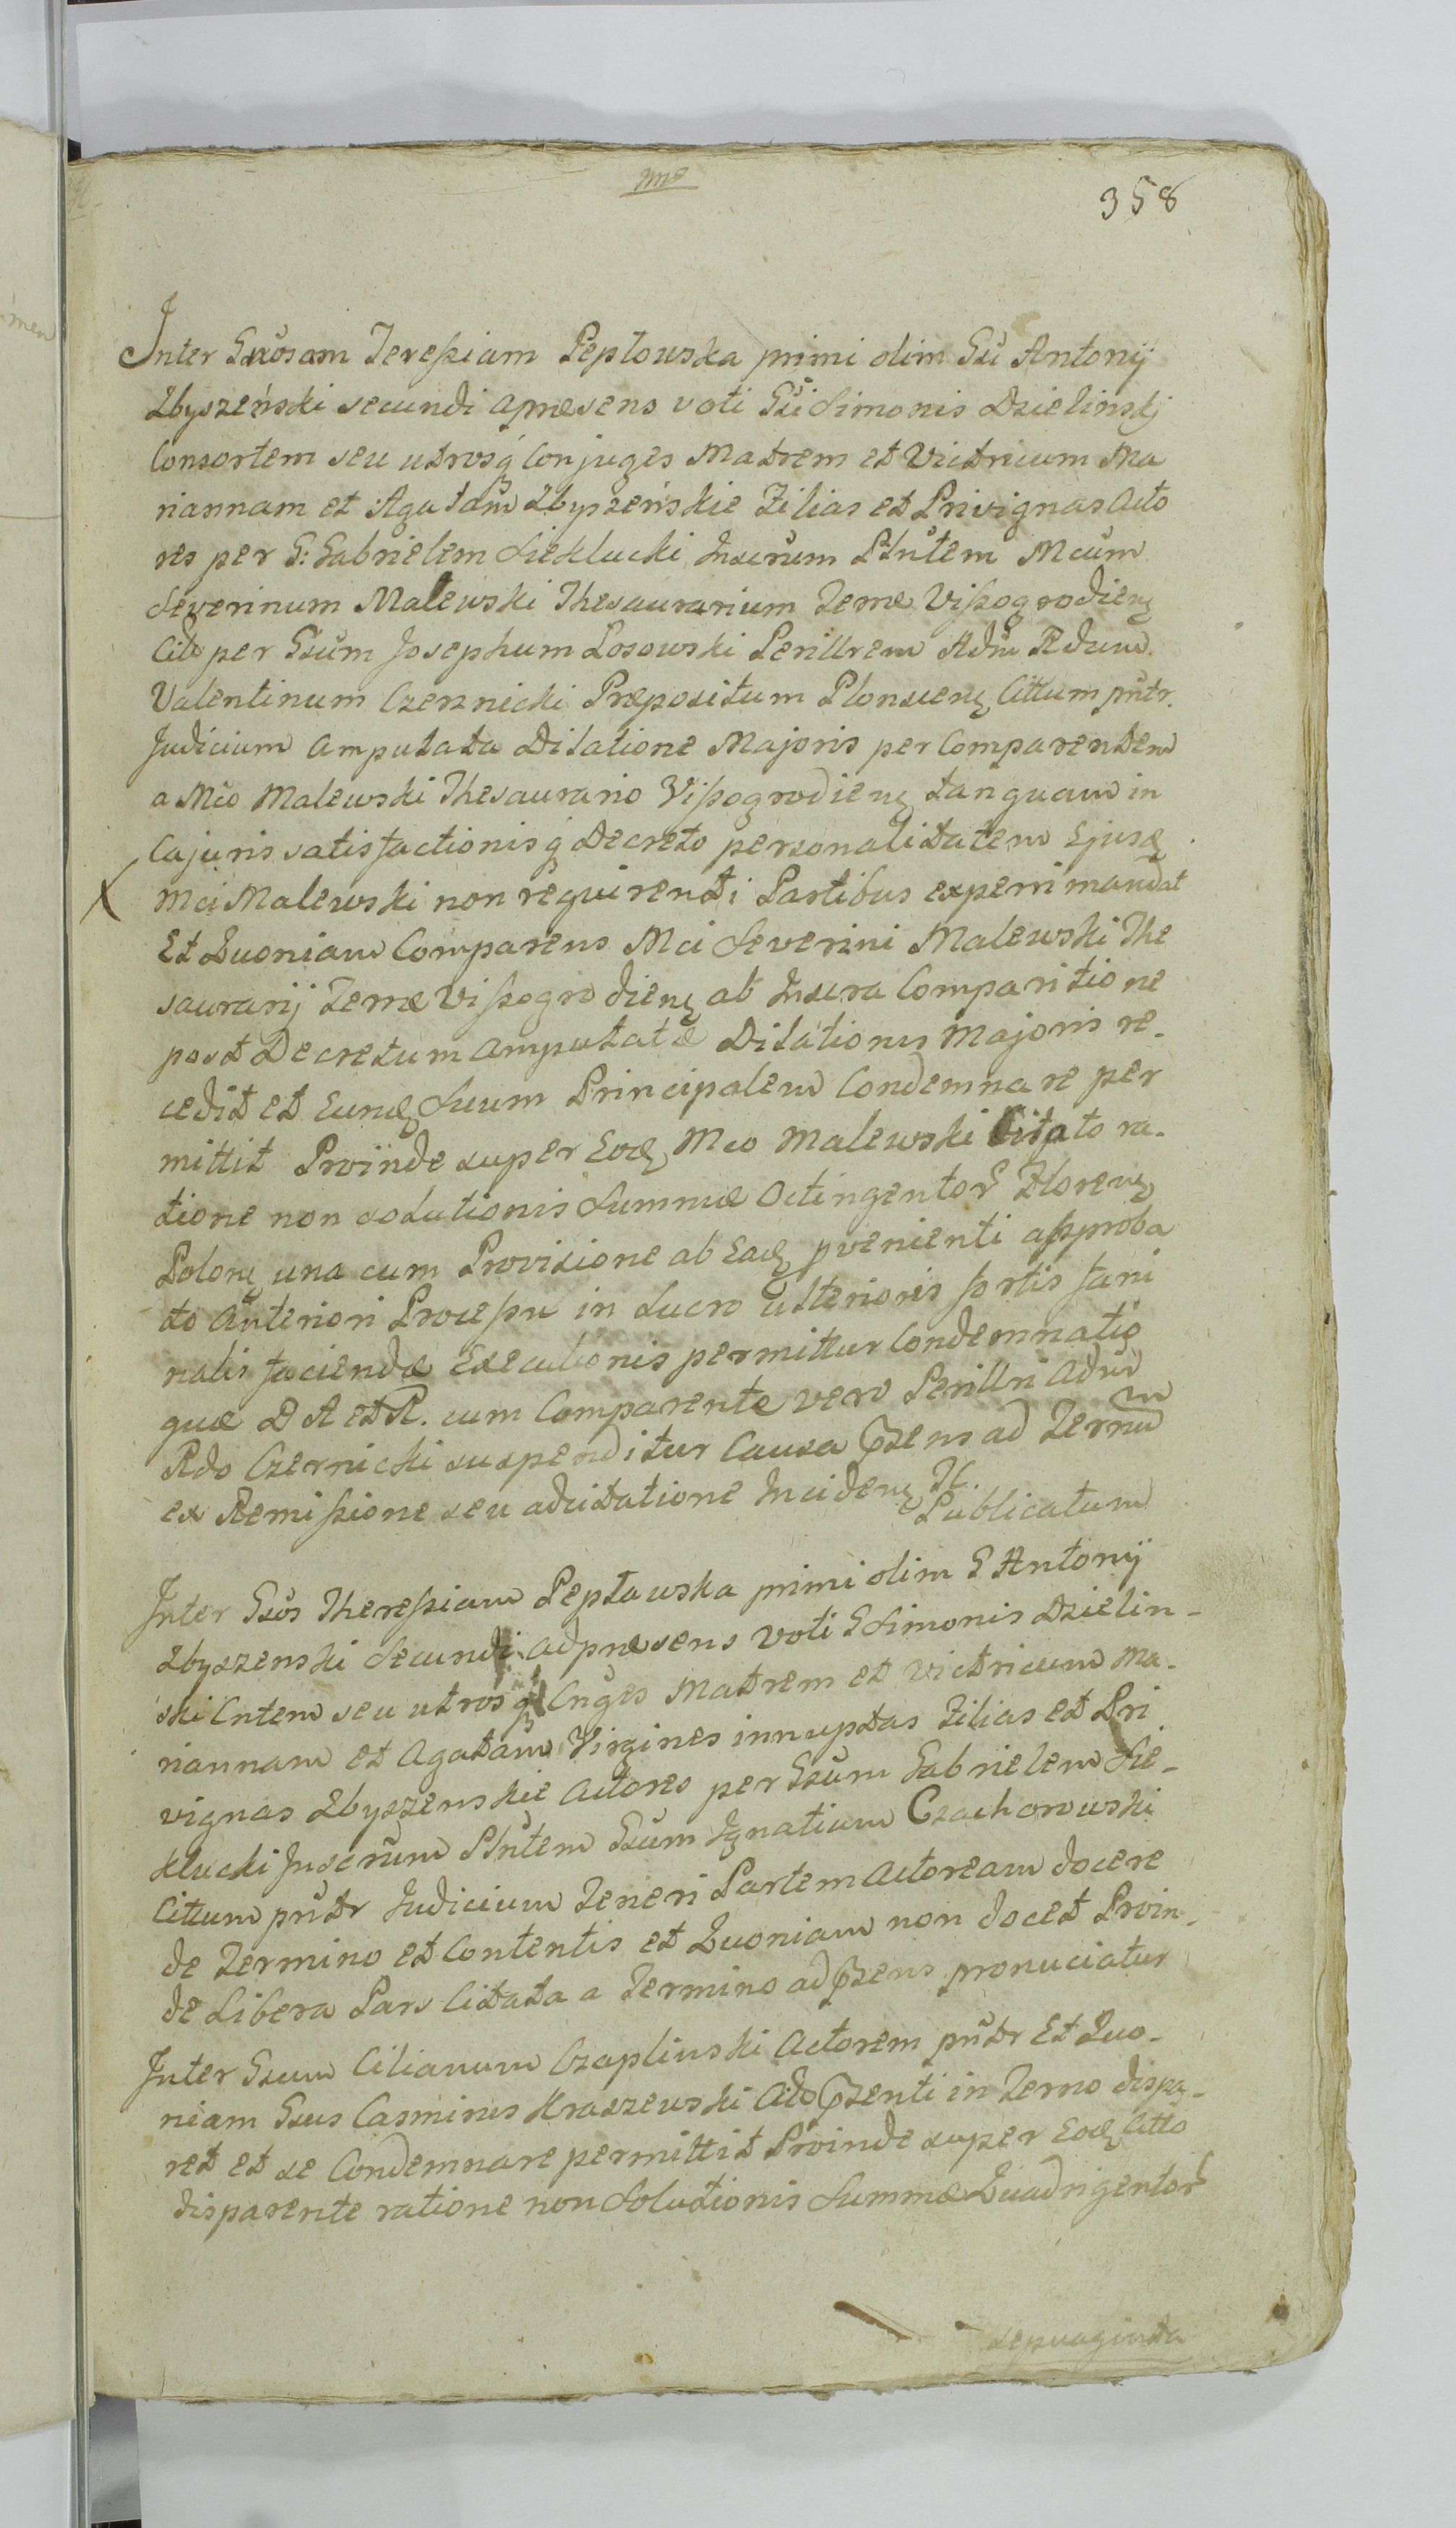 358
Inter Gnosam Teresiam Peplowska primi olim Gsi Antonij
Zbyszeński secundi apræsens voti Gsi Simonis Dzielinskj
Consortem seu utrosq Conjuges Matrem et Victricum Ma
riannam et Agatam Zbyszeńskie Filias et Privignas Acto
res per G: Gabrielem Sieklucki Inscrum Plntem Mcum
Severinum Malewski Thesaurarium Terræ Viszogrodien
Cit per Gsum Josephum Losowski Perillrem Adm Rdum
Valentinum Czernicki Præpositum Plonscen Cittum pntr.
Judicium Amputata Dilatione Majoris per Comparentem
a Mco Malewski Thesaurario Viszogrodien tanquam in
Cajuris satisfactionisq Decreto personalitatem Ejusd
Mci Malewski non requirenti Partibus experri mandat
Et Quoniam Comparens Mci Severini Malewski The
saurarij Terræ Viszogrodien ab Inscra Comparitione
post Decretum Amputatæ Dilationis Majoris re-
cedit et Eund Suum Principalem Condemnare per
mittit Proinde super Eod Mco Malewski Citato ra-
tione non solutionis Summæ Octingentor Floren
Polon una cum Provisione ab Ead pvenienti approba
to Anteriori Processu in Lucro ulterioris fortis fani
nalis faciendæ Executionis permittur Condemnatio
quæ D A et R. cum Comparente vero Perillri Adm
Rdo Czernicki suspenditur Causa pzens ad Ternum
ex Remissione seu adcitatione Inciden H.
Publicatum
Inter Gsos Theresiam Peplawska primi olim G Antonij
Zbyszenski Secundi adpræsens voti G Simonis Dzielin-
ski Cntem seu utrosq Cnges Matrem et Victricum Ma-
riannam et Agatam Virgines innuptas Filias et Pri
vignas Zbyszenskie Actores per Gsum Gabrielem Sie-
klucki Inscrum Plntem Gsum Ignatium Czachorowski
Cittum pntr Judicium Teneri Partem Actoream docere
de Termino et Contentis et Quoniam non docet Proin-
de Libera Pars Citata a Termino adpzens pronuciatur
Inter Gsum Cilianum Czaplinski Actorem pntr Et Quo-
niam Gsus Casmirus Kraszewski Citto pzenti in Terno dispa-
ret et se Condemnare permittit Proinde super Eod Citto
disparente ratione non Solutionis Summæ Quadrigentor
sepuaginta